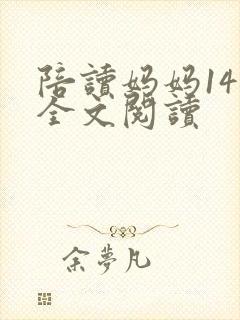 陪讀妈妈14
全文閱讀
余夢凡